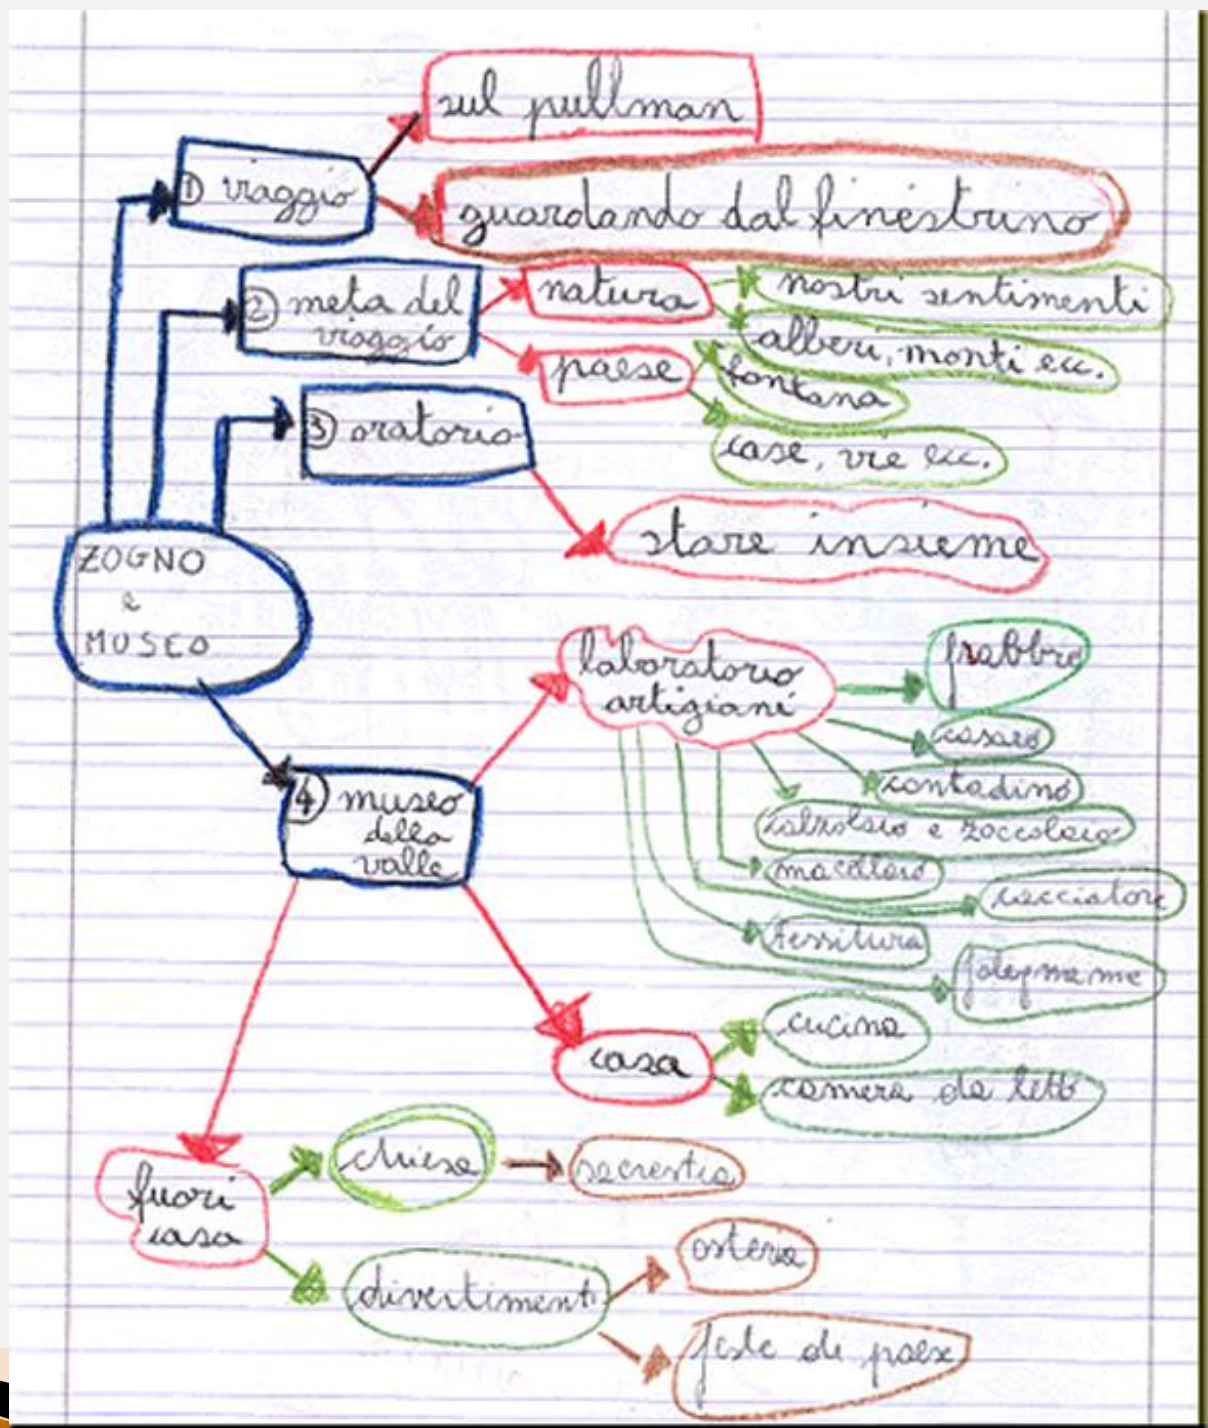 sul pullman
① viaggio
guardando dal finestrino
② meta del
viaggio
natura
nostri sentimenti
alberi, monti ecc.
paese
fontana
case, vie ecc.
③ oratorio
stare insieme
ZOGNO
e
MUSEO
laboratorio
artigiani
frabbro
casaro
contadino
calzolaio e zoccolaio
macellaio
cacciatore
tessitura
④ museo
della
valle
casa
cucina
camera da letto
fuori
casa
chiesa
sacrestia
divertimenti
osteria
feste di paese